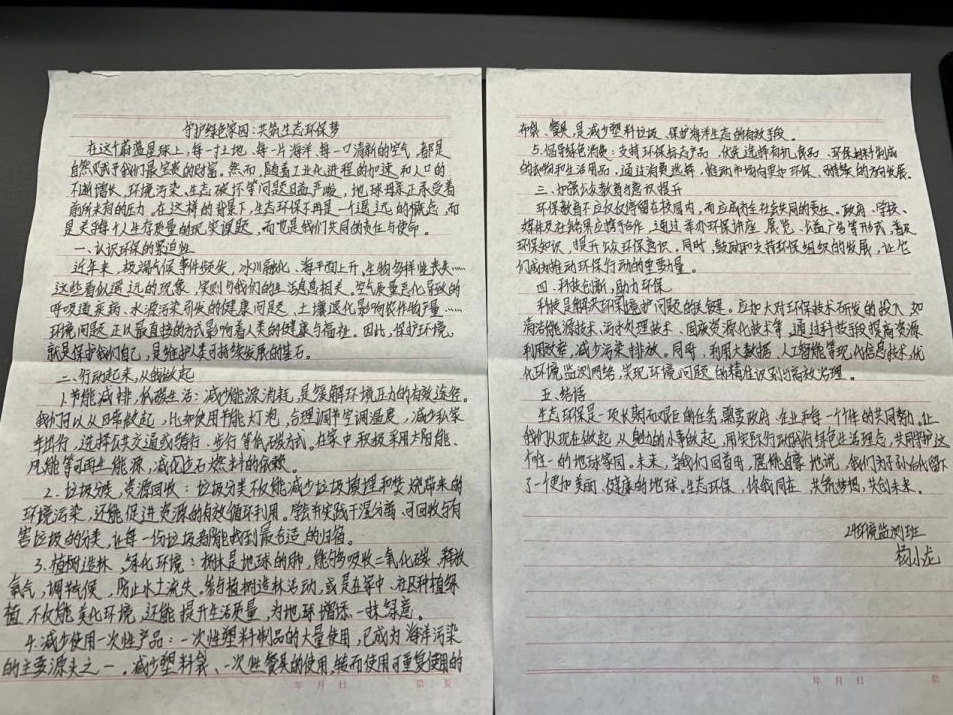 守护绿色家园：共筑生态环保梦
在这个蔚蓝星球上，每一寸土地、每一片海洋、每一口清新的空气，都是
自然赋予我们最宝贵的财富。然而，随着工业化进程的加速和人口的
不断增长，环境污染、生态破坏等问题日益严峻，地球母亲正承受着
前所未有的压力。在这样的背景下，生态环保不再是一个遥远的概念，而
是关乎每个人生存质量的现实课题，而也是我们共同的责任与使命。
一、认识环保的紧迫性
近年来，极端气候事件频发，冰川融化、海平面上升，生物多样性丧失……
这些看似遥远的现象，实则与我们的生活息息相关。空气质量恶化导致的
呼吸道疾病、水源污染引发的健康问题、土壤退化影响农作物产量……
环境问题正以最直接的方式影响着人类的健康与福祉。因此，保护环境，
就是保护我们自己，是维护人类可持续发展的基石。
二、行动起来，从我做起
1.节能减排，低碳生活：减少能源消耗，是缓解环境压力的有效途径。
我们可以从日常做起，比如使用节能灯泡，合理调节空调温度，减少私家
车出行，选择公共交通或骑行、步行等低碳方式。在家中，积极采用太阳能、
风能等可再生能源，减少化石燃料的依赖。
2.垃圾分类，资源回收：垃圾分类不仅能减少垃圾填埋和焚烧带来的
环境污染，还能促进资源的有效循环利用。学会并实践干湿分离、可回收与有
害垃圾的分类，让每一份垃圾都能找到最合适的归宿。
3.植树造林，绿化环境：树木是地球的肺，能够吸收二氧化碳、释放
氧气，调节气候，防止水土流失。参与植树造林活动，或是在家中、社区种植绿
植，不仅能美化环境，还能提升生活质量，为地球增添一抹绿意。
4.减少使用一次性产品：一次性塑料制品的大量使用，已成为海洋污染
的主要源头之一。减少塑料袋、一次性餐具的使用，转而使用可重复使用的
布袋、餐具，是减少塑料垃圾、保护海洋生态的有效手段。
5.倡导绿色消费：支持环保标志产品，优先选择有机食品、环保材料制成
的衣物和生活用品，通过消费选择，推动市场向更加环保、可持续的方向发展。
三、加强公众教育与意识提升
环保教育不应仅仅停留在校园内，而应成为全社会共同的责任。政府、学校、
媒体及社会组织应携手合作，通过举办环保讲座、展览、公益广告等形式，普及
环保知识，提升公众环保意识。同时，鼓励和支持环保组织的发展，让它
们成为推动环保行动的重要力量。
四、科技创新，助力环保
科技是解决环境保护问题的关键。应加大对环保技术研发的投入，如
清洁能源技术、污水处理技术、固废资源化技术等，通过科技手段提高资源
利用效率，减少污染排放。同时，利用大数据、人工智能等现代信息技术，优
化环境监测网络，实现环境问题的精准识别与高效治理。
五、结语
生态环保是一项长期而艰巨的任务，需要政府、企业和每一个个体的共同努力。让
我们从现在做起，从身边的小事做起，用实际行动践行绿色生活理念，共同守护这
个唯一的地球家园。未来，当我们回首时，愿能自豪地说，我们为子孙后代留下
了一个更加美丽、健康的地球。生态环保，你我同在，共筑梦想，共创未来。
24环境监测班
杨小龙
年 月 日 第 页
年 月 日 第